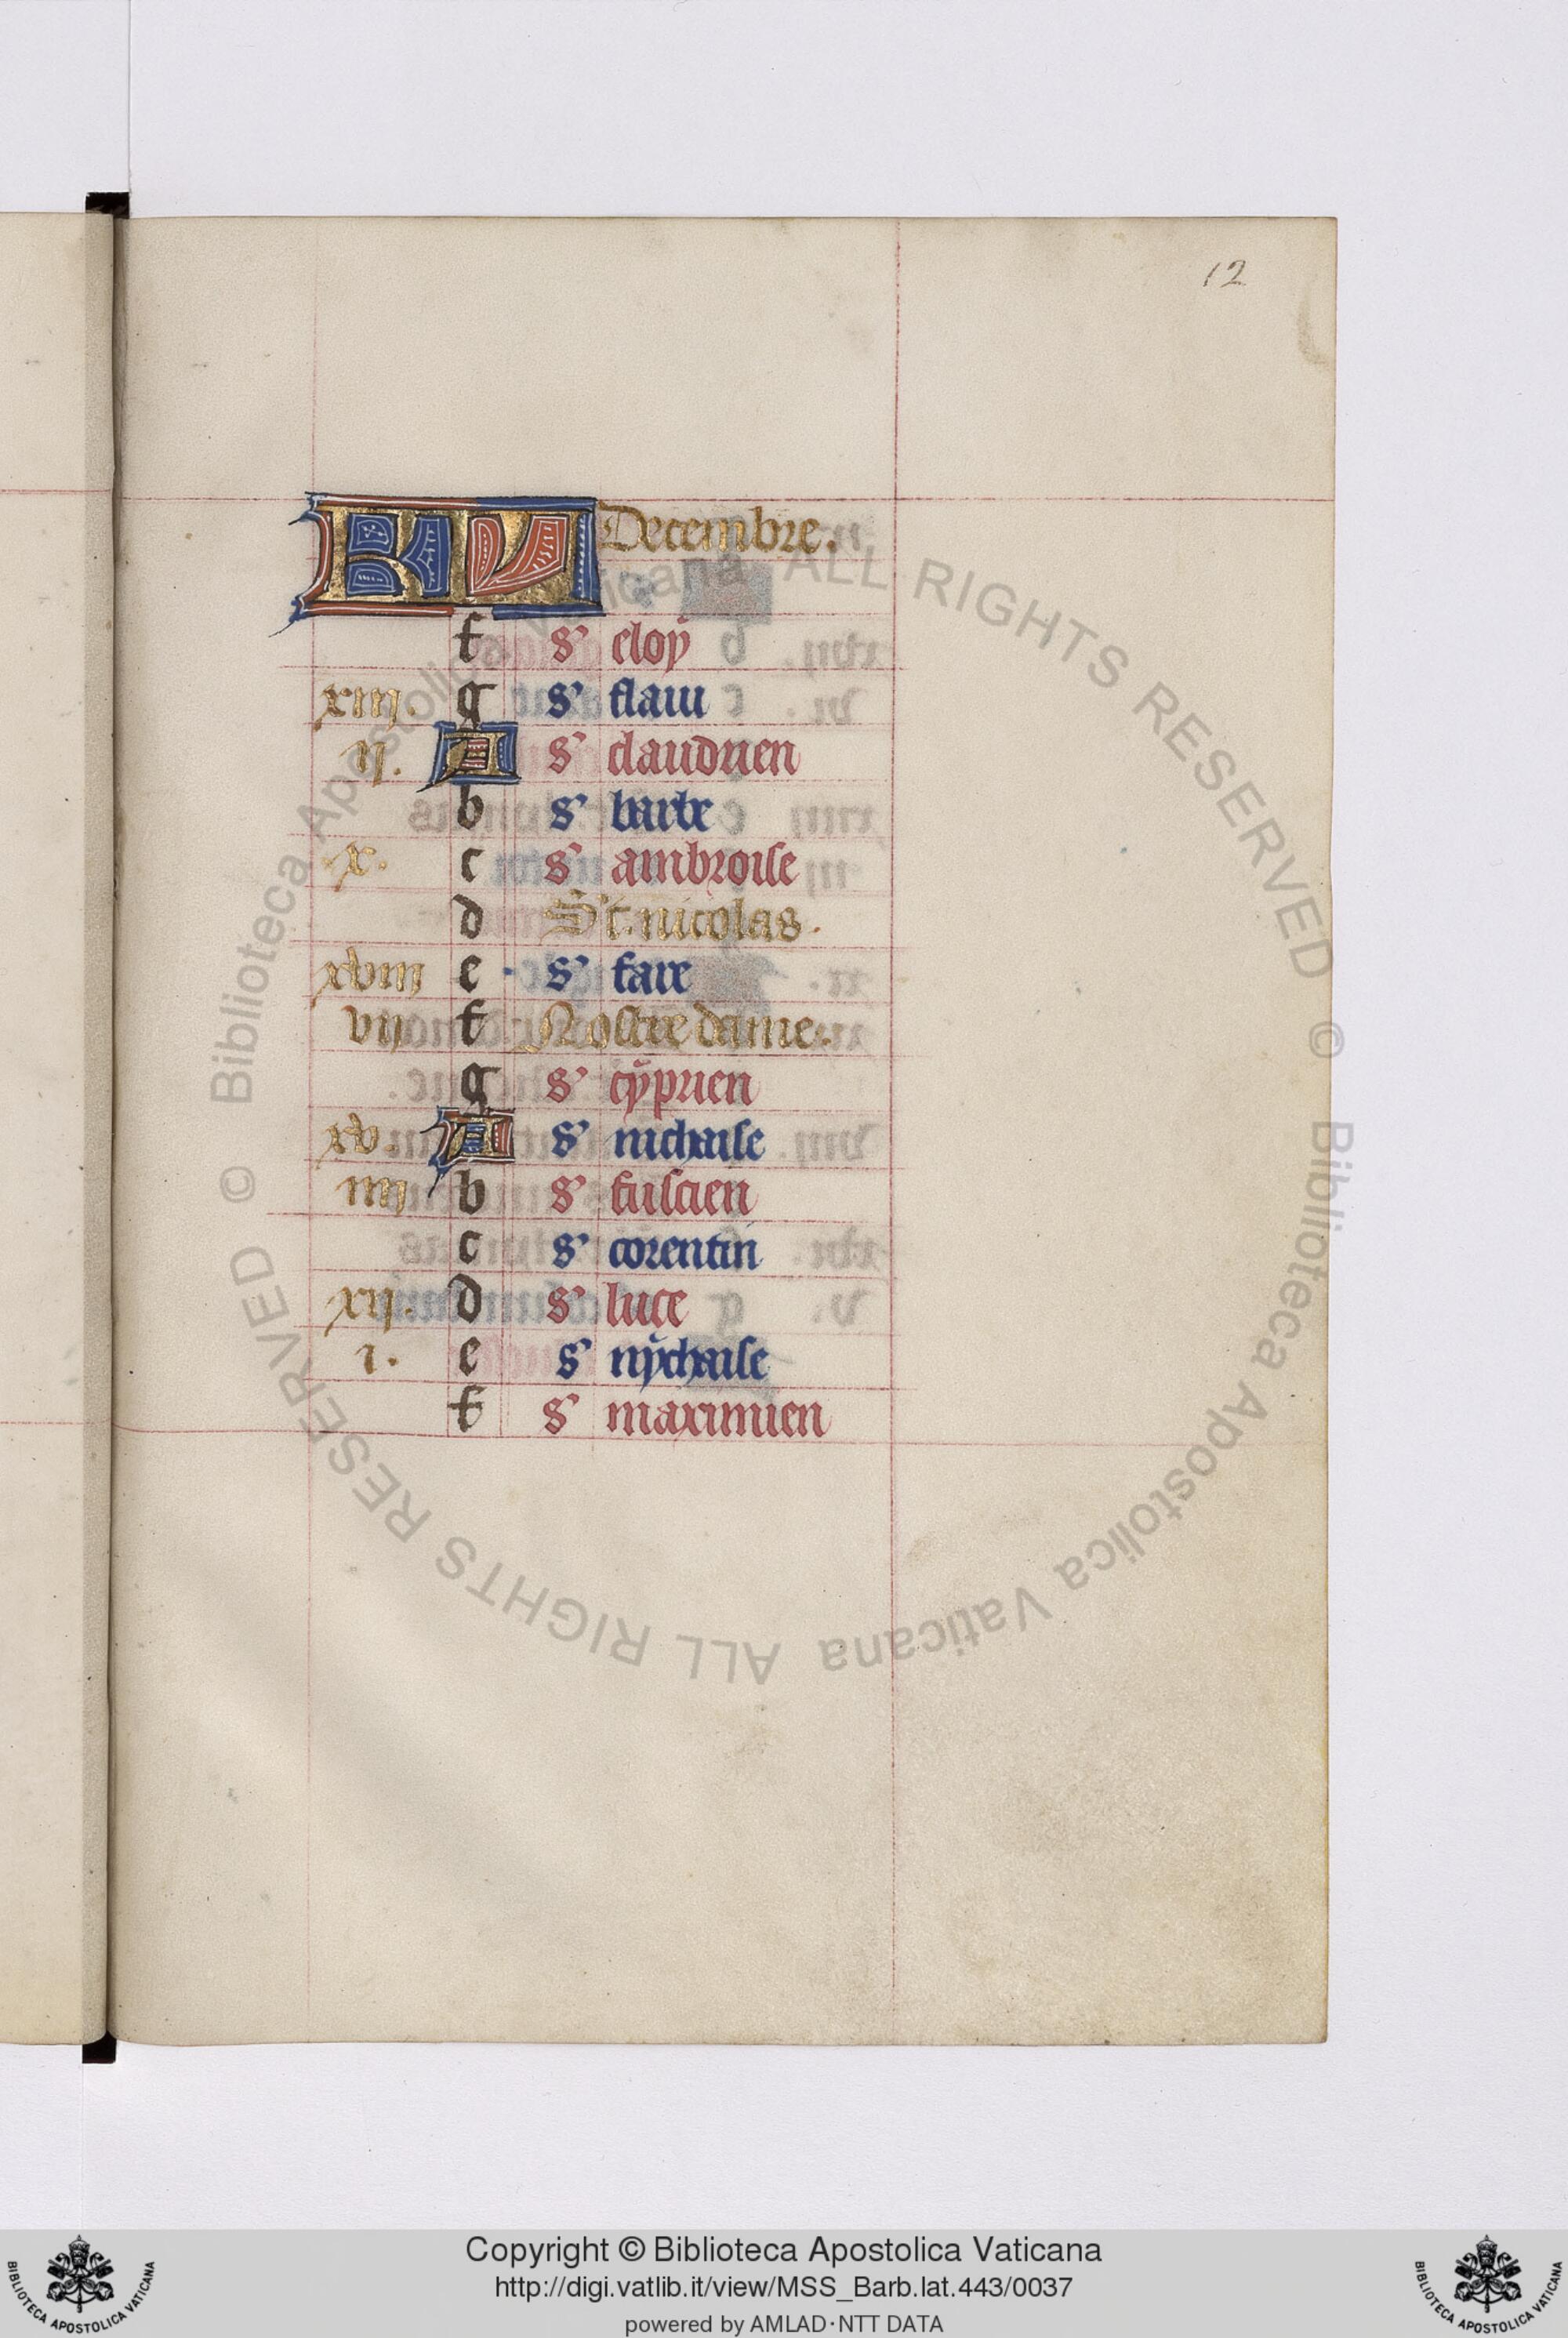 12
KL Decembre.
f s' eloÿ
xiij. g s' flaui
ij. A s' claudien
b s' barbe
x. c s' ambroise
d St. nicolas.
xviij e s' fare
vij f Nostre dame.
g s' cÿprien
xv. A s' nichaise
iiij b s' fuscien
c s' corentin
xij. d s' luce
i. e s' nÿchaise
f s' maximien
© Biblioteca Apostolica Vaticana ALL RIGHTS RESERVED © Biblioteca Apostolica Vaticana ALL RIGHTS RESERVED
Copyright © Biblioteca Apostolica Vaticana
http://digi.vatlib.it/view/MSS_Barb.lat.443/0037
powered by AMLAD·NTT DATA
BIBLIOTECA APOSTOLICA VATICANA
BIBLIOTECA APOSTOLICA VATICANA